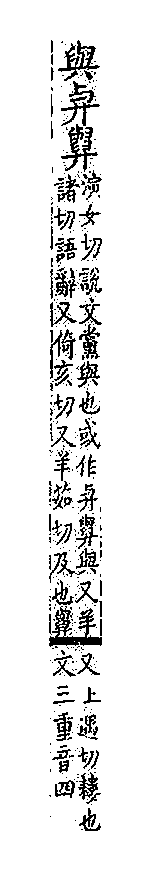 與𢌱㒜
演女切說文黨與也或作𢌱㒜與又羊
諸切語辭又倚亥切又羊茹切及也㒜
又上遇切耬也
文三重音四